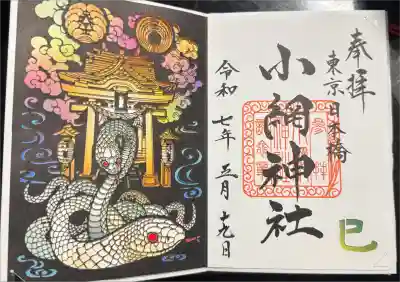 奉拝
東京日本橋
小網神社
令和七年五月十九日
巳